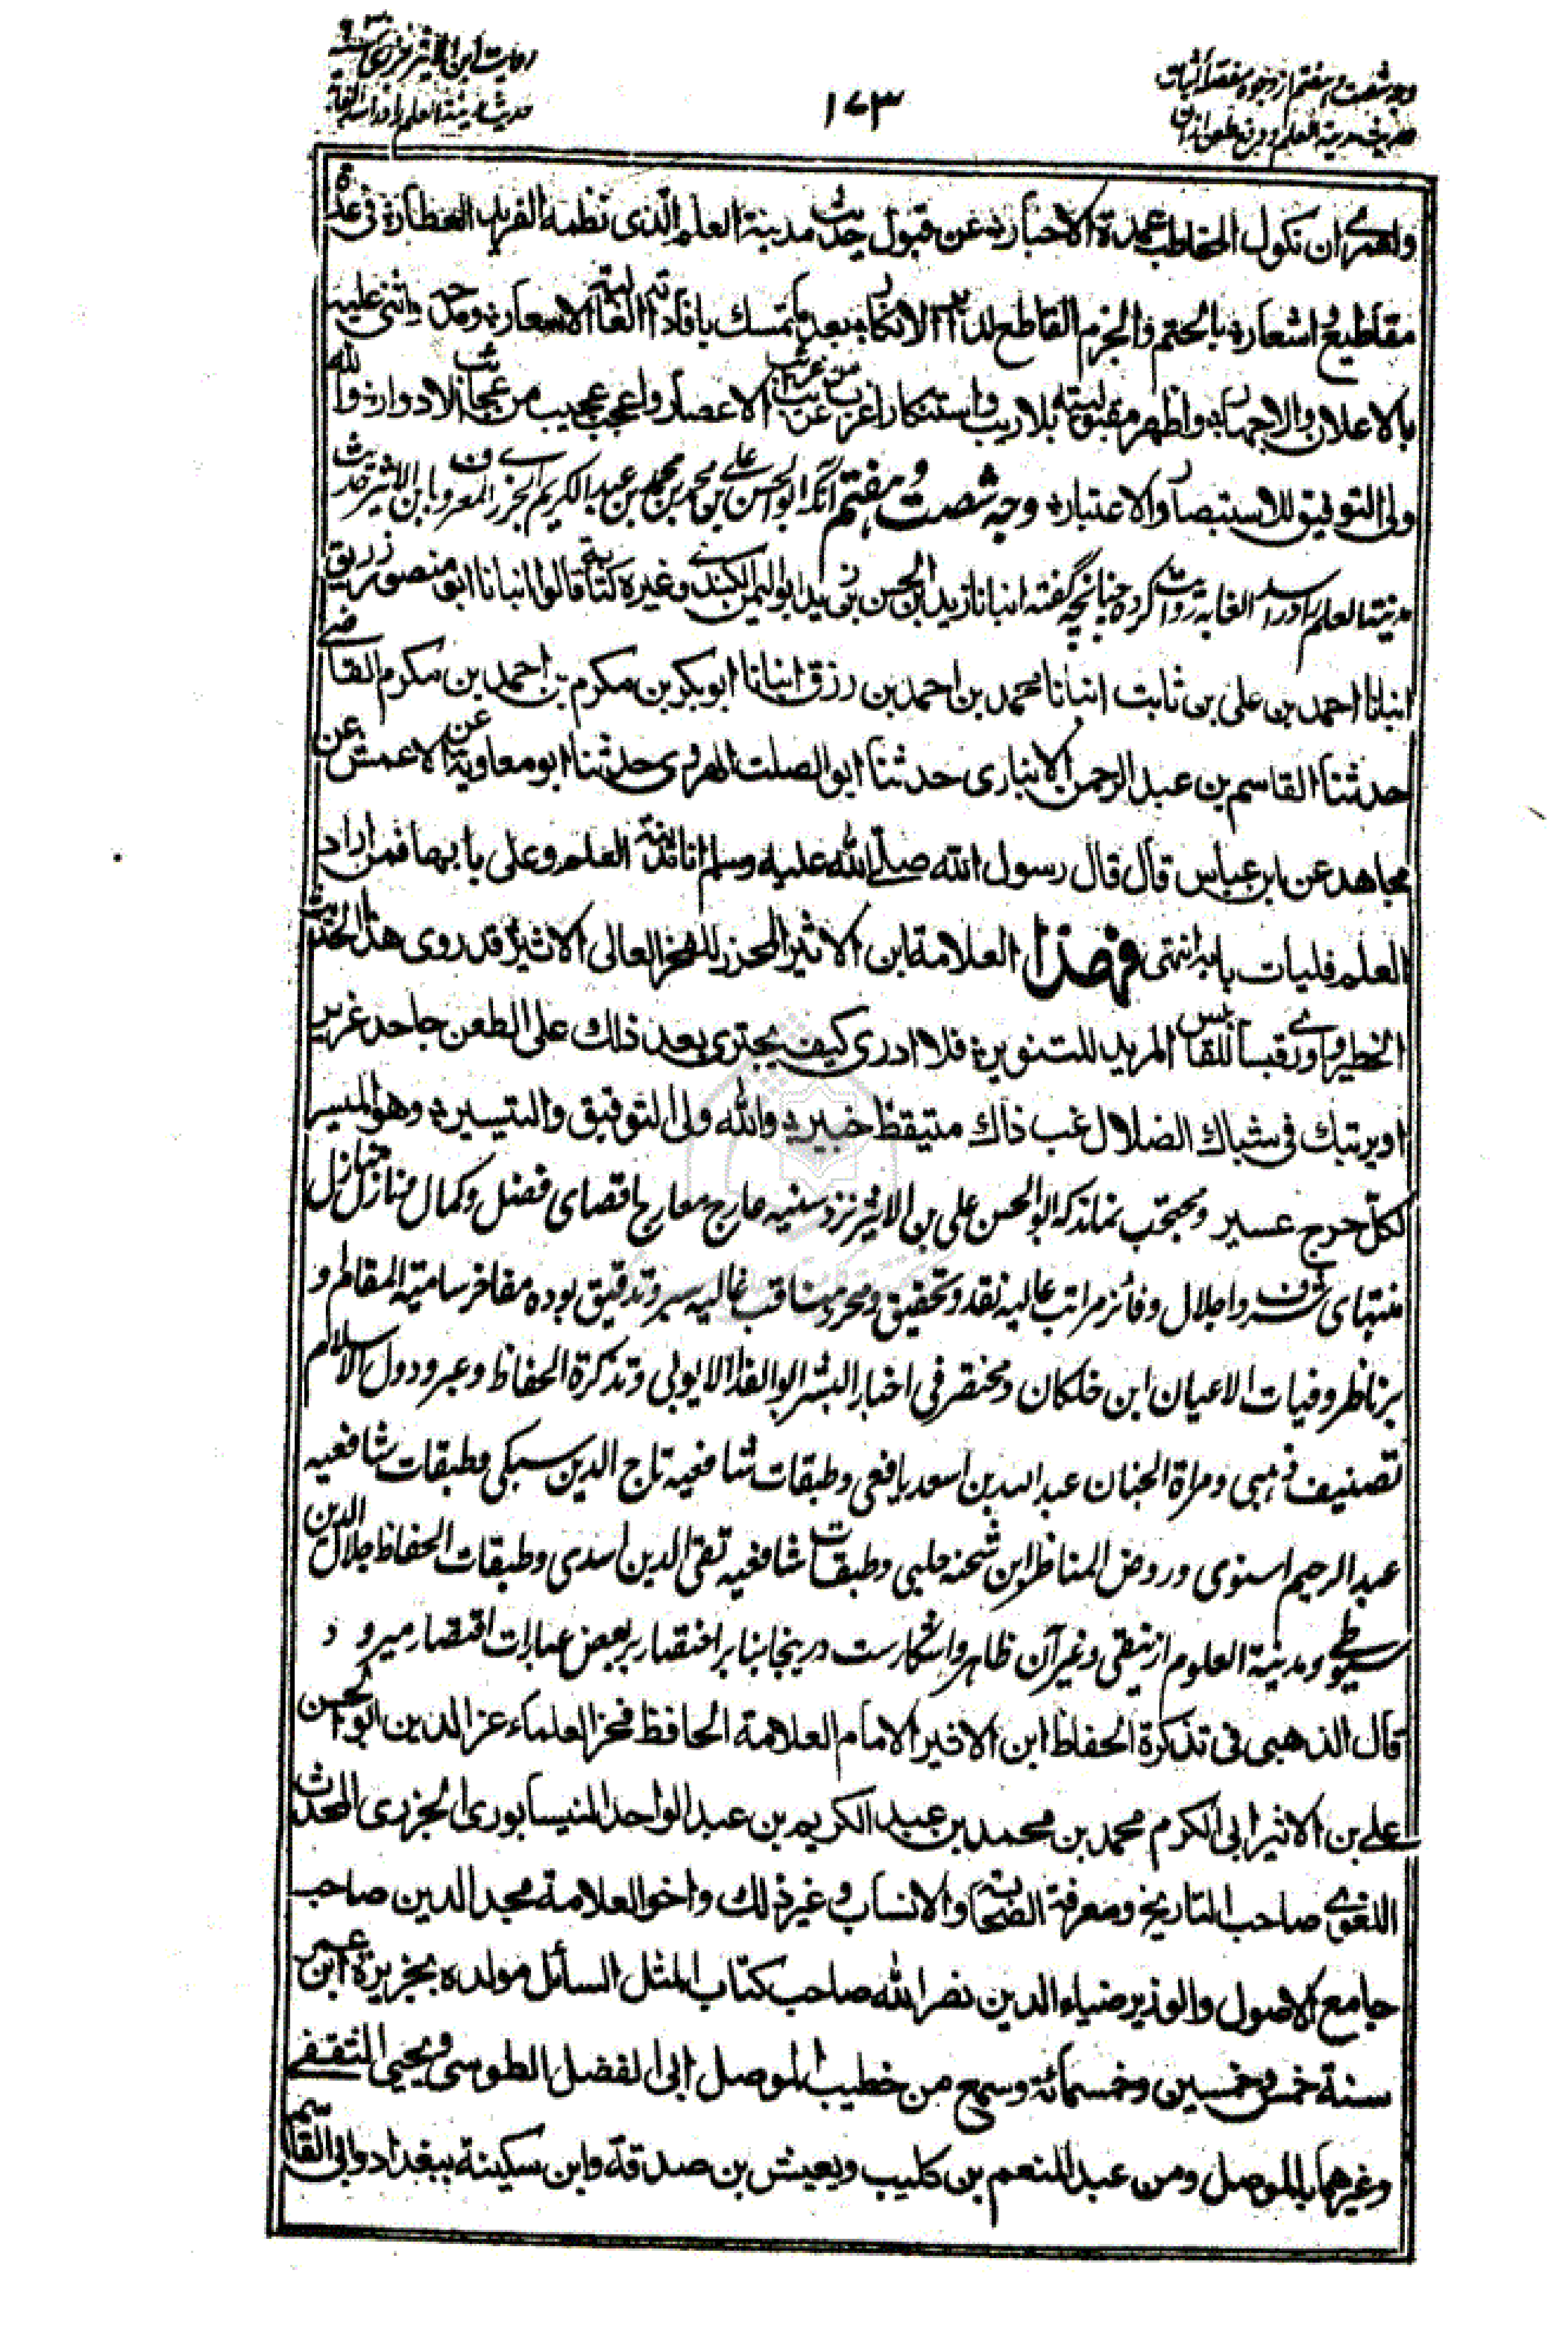 وجه شصت و هفتم از وجوه مفصله اثبات
حدیث مدینة العلم و فیه طعن
۱۷۳
روایت ابن الاثیر جزری
حدیث مدینة العلم را در اسد الغابة
ولعمری ان نکول المخاطب عمدة الاحبار، عن قبول حدیث مدینة العلم الذی نظمه الفرید العطار، فی عدة
مقاطیع اشعاره بالحتم والجزم القاطع لدابر الانکار، بعد ما تمسک بافاداته القالیة الاسعار، ومدحه واثنی علیه
بالاعلان والاجهار، واظهر مقبولیته بلا ریب واستنکار اغرب غریب من غرائب الاعصار واعجب عجیب من عجائب الادوار، والله
ولی التوفیق للاستبصار والاعتبار، وجه شصت و هفتم آنکه ابو الحسن علی بن محمد بن محمد بن عبد الکریم الجزری المعروف بابن الاثیر حدیث
مدینة العلم را در اسد الغابة روایت کرده چنانچه گفته انبانا زید بن الحسن بن زید ابو الیمن الکندی وغیره کتابة قالوا انبانا ابو منصور زریق
انبانا احمد بن علی بن ثابت انبانا محمد بن احمد بن رزق انبانا ابو بکر بن مکرم بن احمد بن مکرم القاضی
حدثنا القاسم بن عبد الرحمن الانباری حدثنا ابو الصلت الهروی حدثنا ابو معاویة عن الاعمش عن
مجاهد عن ابن عباس قال قال رسول الله صلی الله علیه وسلم انا مدینة العلم وعلی بابها فمن اراد
العلم فلیات بابه انتهی فهذا العلامة ابن الاثیر المحرز للفخر العالی الاثیر، قد روی هذا الحدیث
الخطیر، واوری قبسا للقابس المرید للتنویر، فلا ادری کیف یجتری بعد ذلک علی الطعن جاحد غریر
او یرتبک فی شباک الضلال غب ذاک متیقظ خبیر، والله ولی التوفیق والتیسیر، وهو المیسر
لکل حرج عسیر و محتجب نماند که ابو الحسن علی بن الاثیر نزد سنیه عارج معارج اقصای فضل و کمال و نازل منازل
منتهای شرف و اجلال و فائز مراتب عالیه نقد و تحقیق و محرز مناقب غالیه سبر و تدقیق بوده مفاخر سامیة المقاطر او
بر ناظر وفیات الاعیان ابن خلکان و مختصر فی اخبار البشر ابو الفدا الایوبی و تذکرة الحفاظ و عبر و دول الاسلام
تصنیف ذهبی و مراة الجنان عبد الله بن اسعد یافعی و طبقات شافعیه تاج الدین سبکی و طبقات شافعیه
عبد الرحیم اسنوی و روض المناظر ابن شحنه حلبی و طبقات شافعیه تقی الدین اسدی و طبقات الحفاظ جلال الدین
سیوطی و مدینة العلوم ازنیقی و غیر آن ظاهر و آشکارست درینجا بنابر اختصار بر بعض عبارات اقتصار میرود
قال الذهبی فی تذکرة الحفاظ ابن الاثیر الامام العلامة الحافظ فخر العلماء عز الدین ابو الحسن
علی بن الاثیر ابی الکرم محمد بن محمد بن عبد الکریم بن عبد الواحد النیسابوری الجزری المحدث
اللغوی صاحب التاریخ ومعرفة الصحابة والانساب وغیر ذلک واخو العلامة مجد الدین صاحب
جامع الاصول والوزیر ضیاء الدین نصر الله صاحب کتاب المثل السائل مولده بجزیرة ابن عمر
سنة خمس وخمسین وخمسمائة وسمع من خطیب الموصل ابی الفضل الطوسی ویحیی الثقفی
وغیرهما بالموصل ومن عبد المنعم بن کلیب ویعیش بن صدقة وابن سکینة ببغداد وابی القاسم